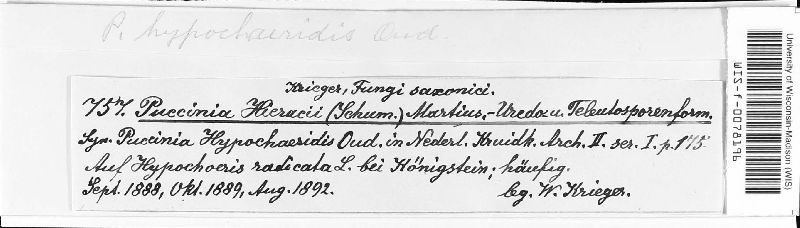 P. hypochaeridis Oud.
Krieger, Fungi saxonici.
757. Puccinia Hieracii (Schum.) Martius,- Uredo u. Teleutosporenform.
Syn. Puccinia Hypochaeridis Oud. in Nederl. Kruidk. Arch. II. ser. I. p. 175.
Auf Hypochoeris radicata L. bei Königstein; häufig.
Sept. 1888, Okt. 1889, Aug. 1892. lg. W. Krieger.
University of Wisconsin-Madison (WIS)
WIS-f-0078196